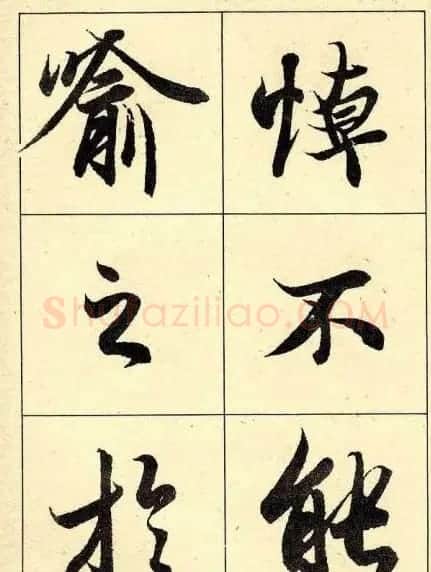 悼不能
喻之於
Shufaziliao.COM